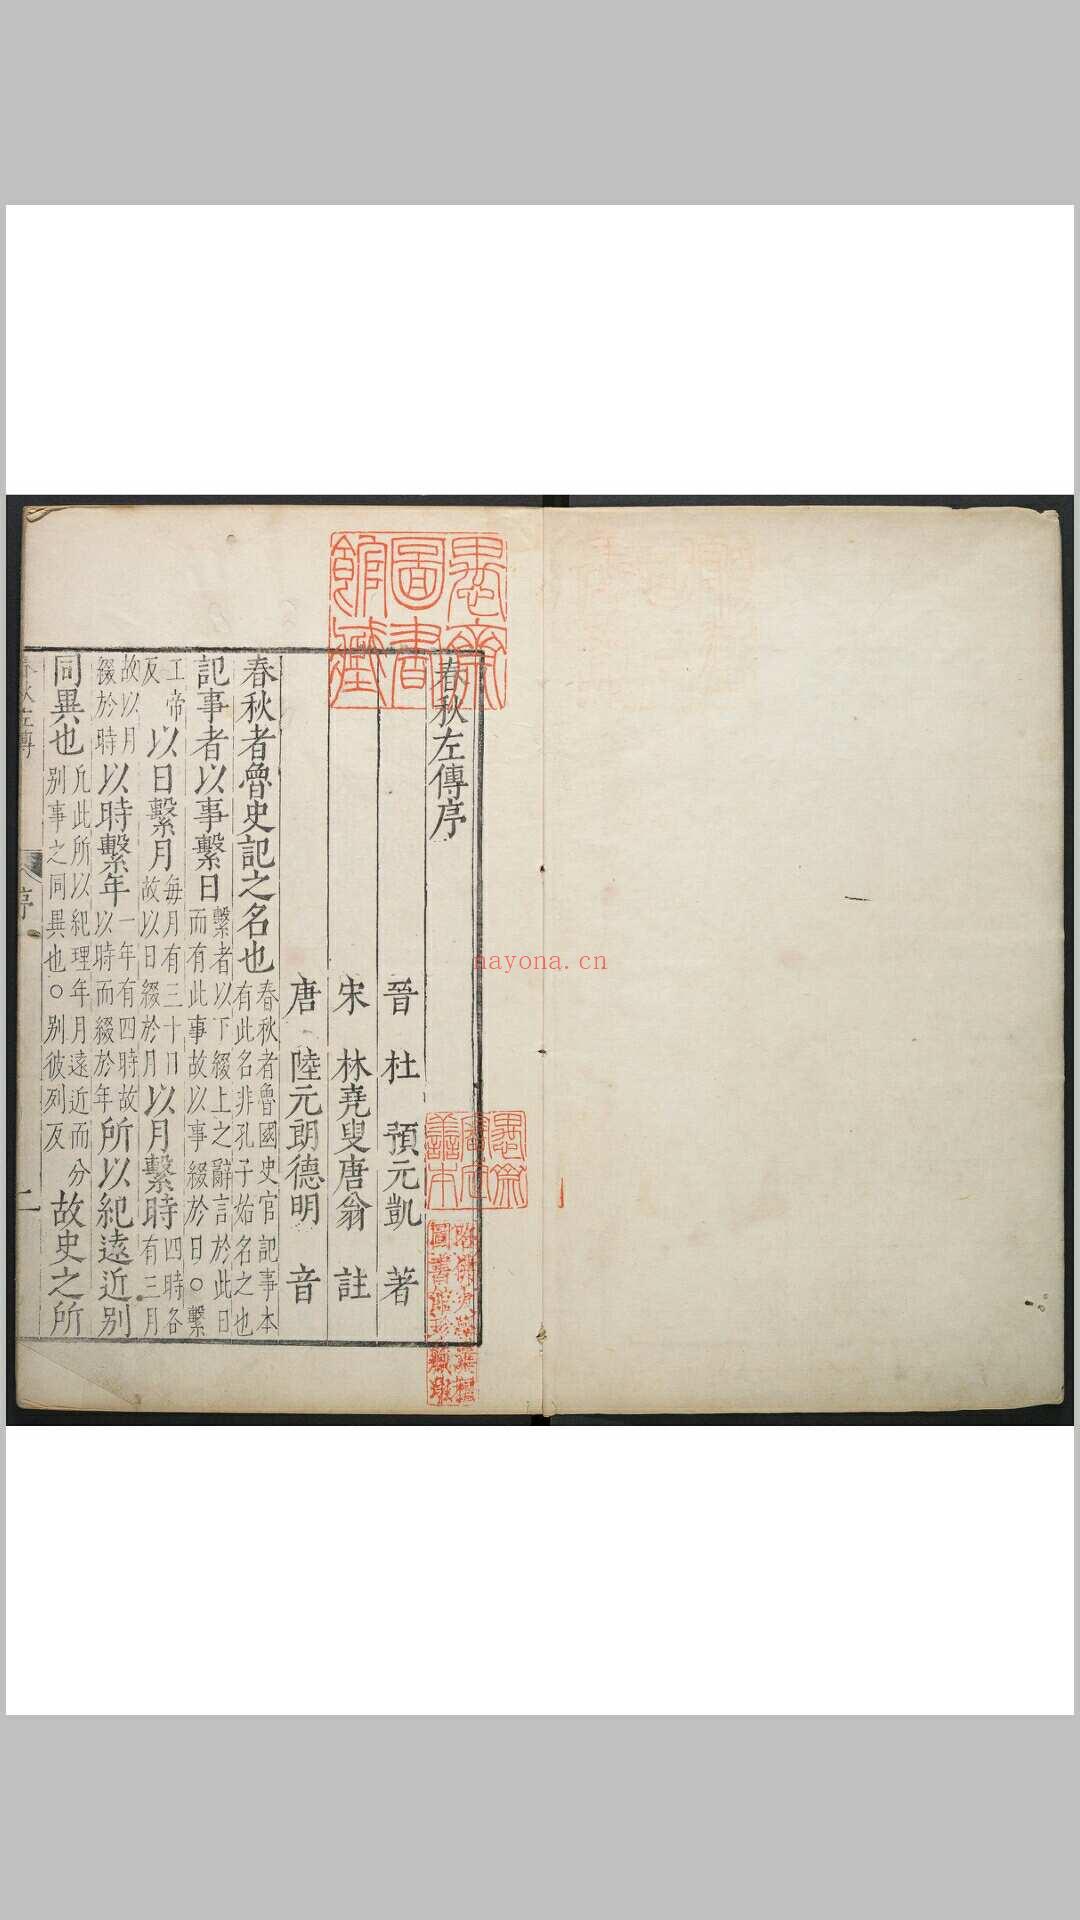 愚齋圖書館藏
春秋左傳序
愚齋審定善本
晉 杜 預元凱 著
宋 林堯叟唐翁 註
唐 陸元朗德明 音
春秋者魯史記之名也 春秋者魯國史官記事本有此名非孔子始名之也
記事者以事繫日 繫者以下綴上之辭言於此日而有此事故以事綴於日○繫
工帝反 以日繫月 每月有三十日故以日綴於月 以月繫時 四時各有三月
故以月綴於時 以時繫年 一年有四時故以時而綴於年 所以紀遠近別
同異也 凡此所以紀理年月遠近而分别事之同異也○别彼列反 故史之所
春秋左傳 序
nayona.cn